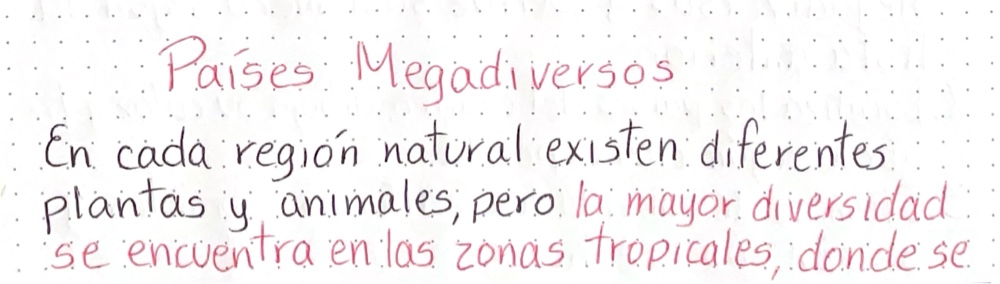 Países Megadiversos
En cada región natural existen diferentes
plantas y animales, pero la mayor diversidad
se encuentra en las zonas tropicales, donde se